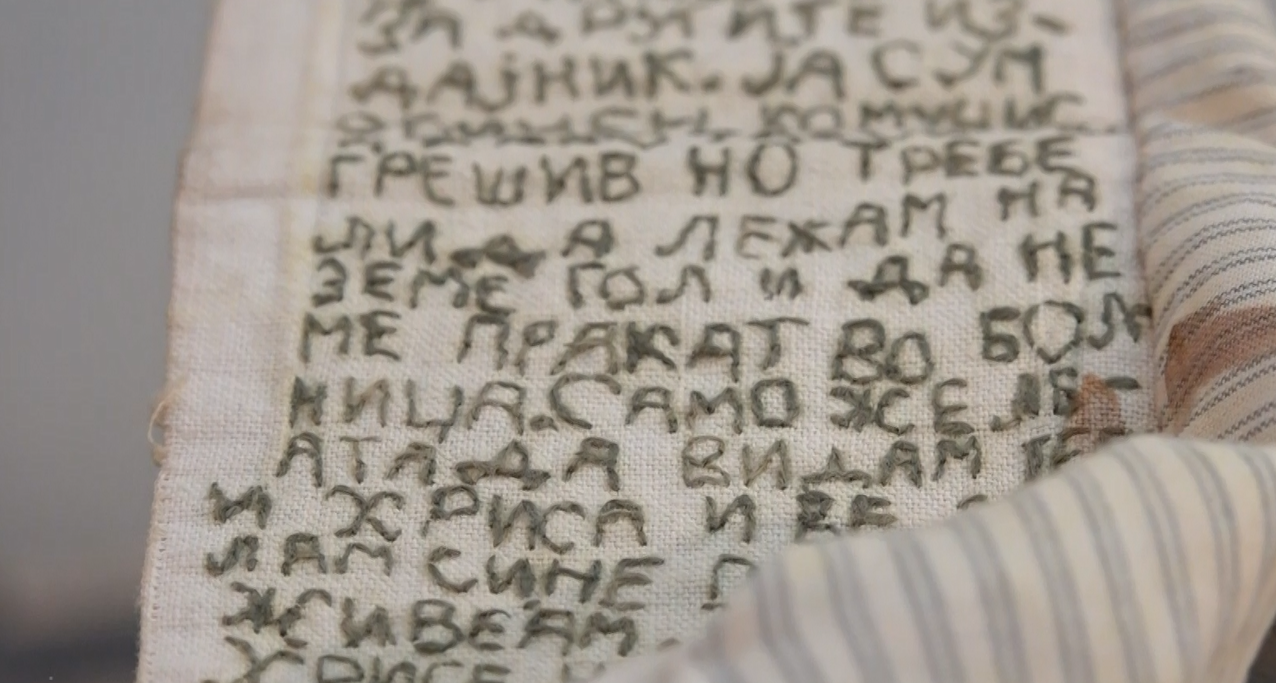 ЗА ДРУГИТЕ ИЗ-
ДАЈНИК. ЈА СУМ
ГРЕШИВ НО ТРЕБЕ
ЛИ ДА ЛЕЖАМ НА
ЗЕМЕ ГОЛ И ДА НЕ
МЕ ПРАКАТ ВО БОЛ
НИЦА. САМО ЖЕЛБ-
АТА ДА ВИДАМ
И ХРИСА И ВЕ
ЛАМ СИНЕ
ЖИВЕАМ.
ХРИСЕ